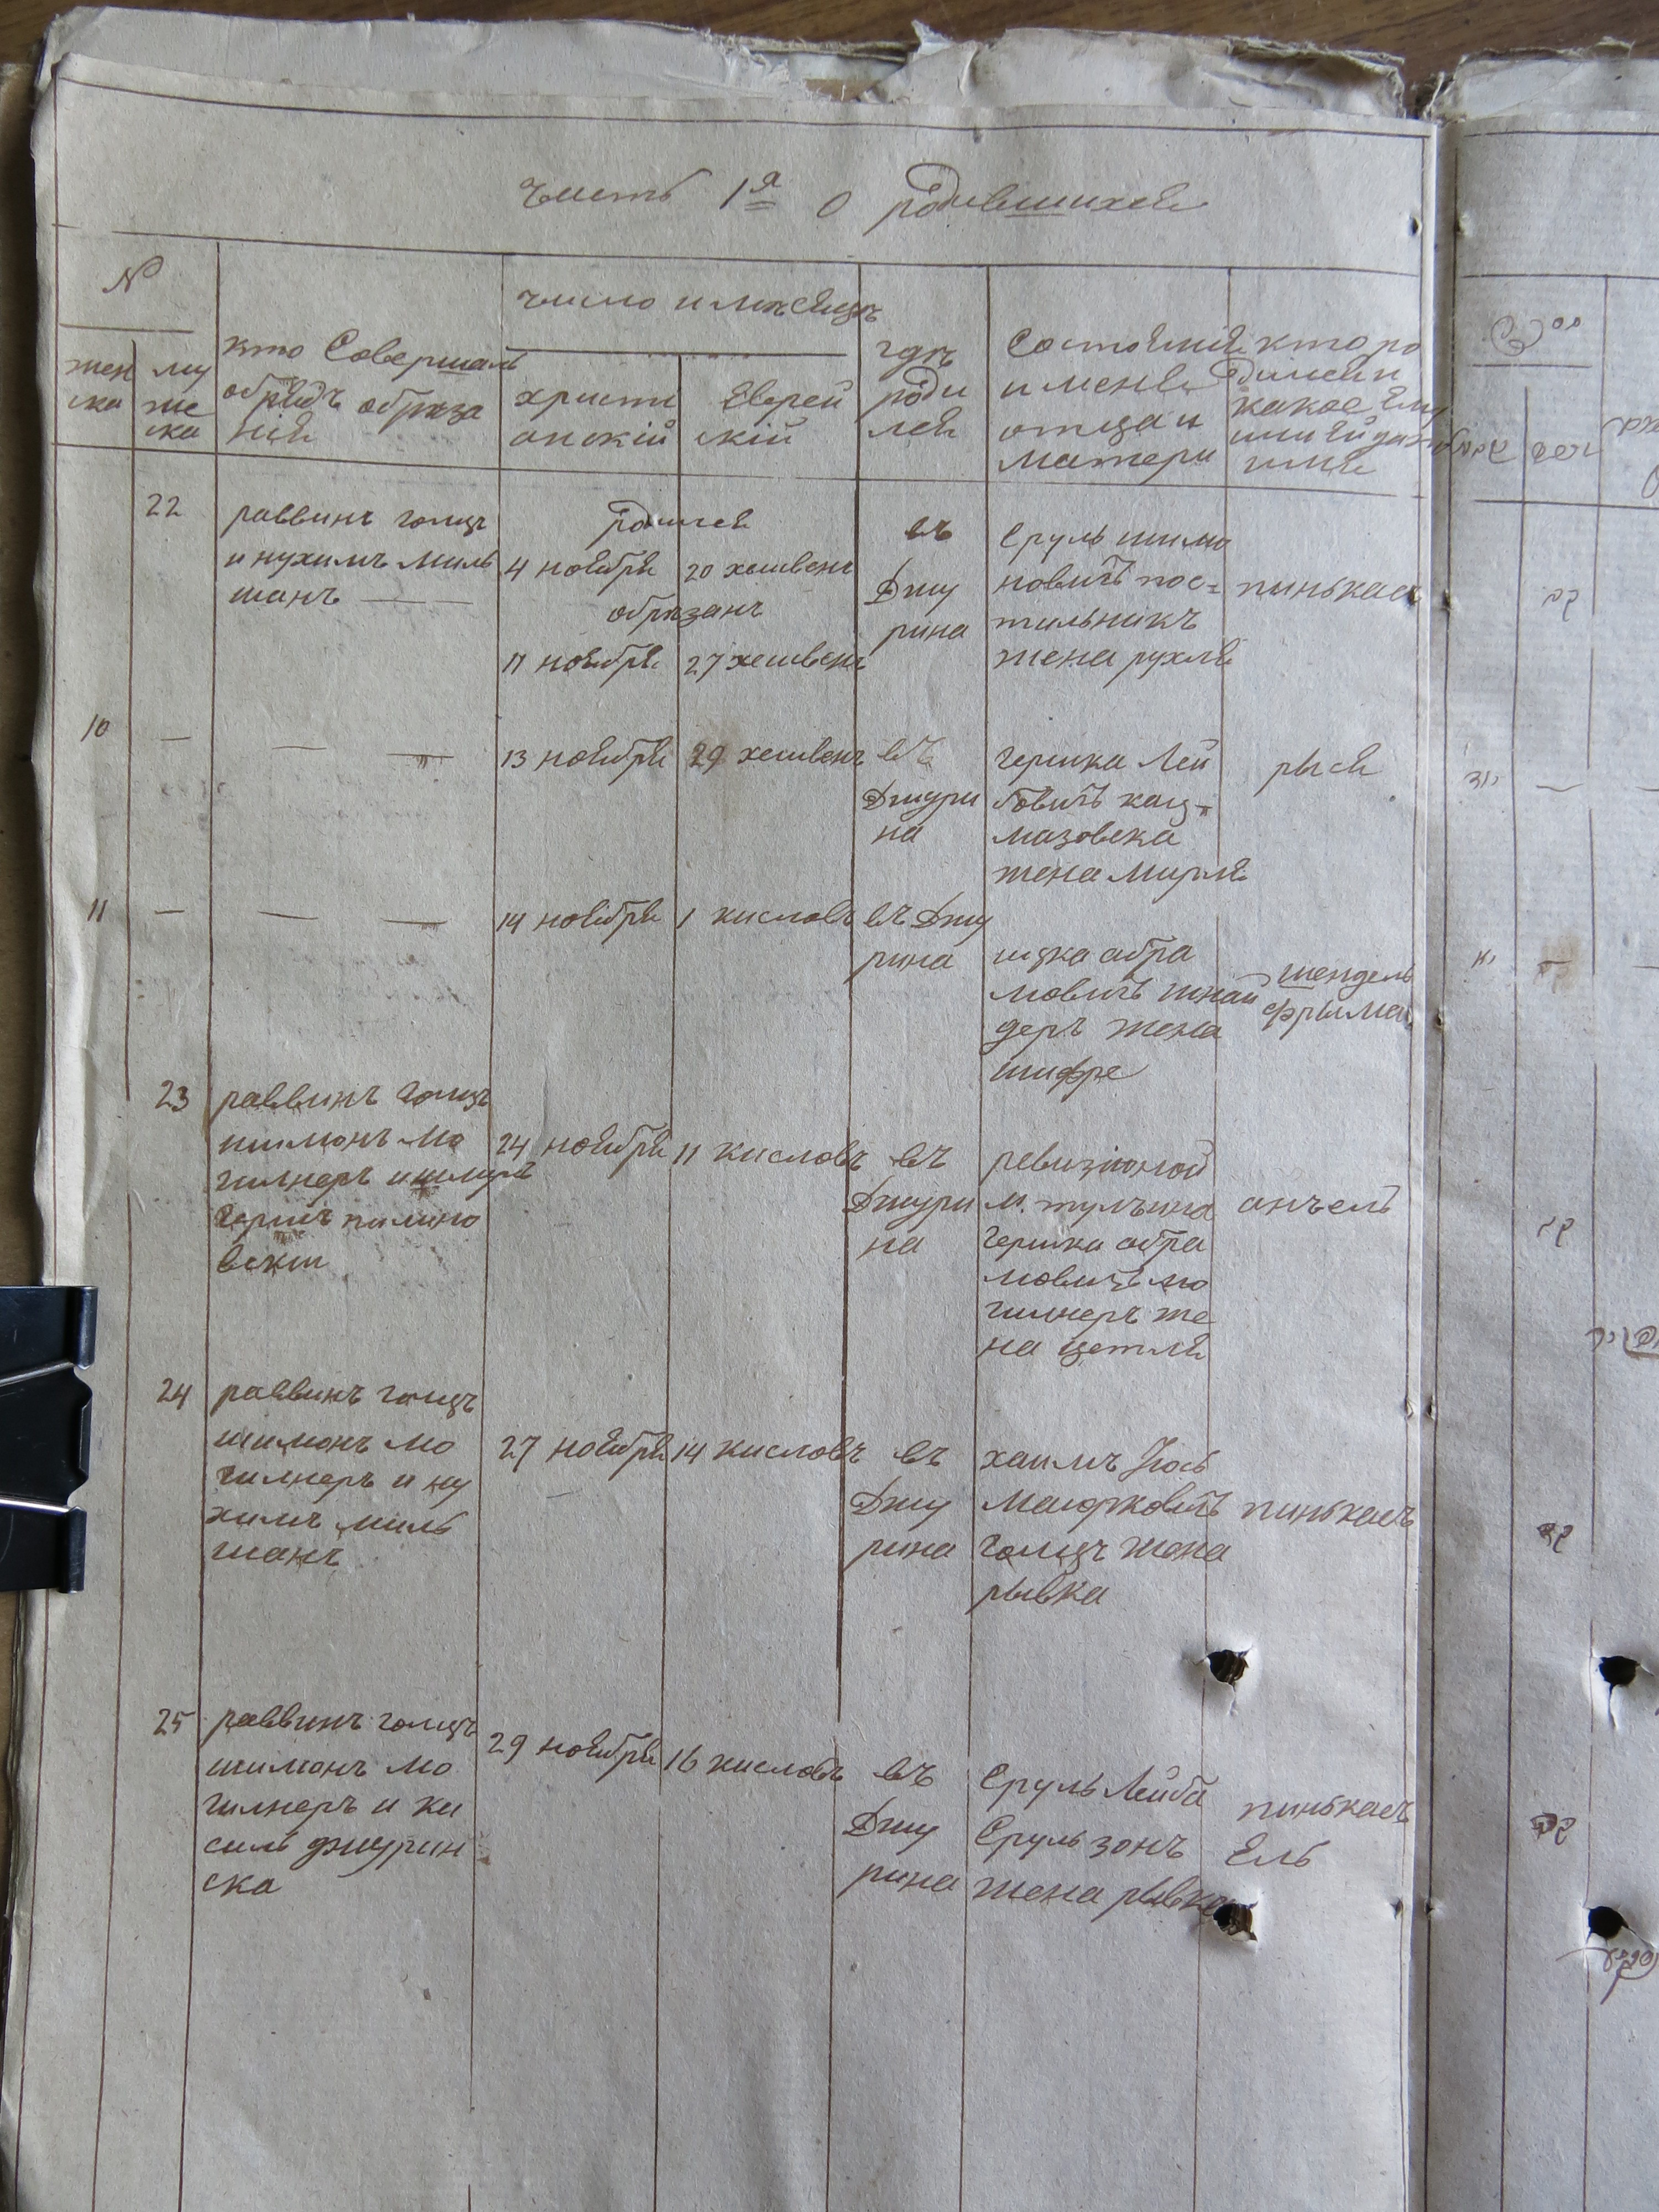 часть 1я о родившихся
№
жен
ска
му
же
ска
кто Совершалъ
обрядъ обреза
нія
число и месяцъ
христи
анскій
Еврей
скій
гдъ
роди
лся
Состояніе
и мена
отца и
матери
кто ро
дился и
какое Ему
или Ей дато
имя
22
раввинъ голцъ
и нухимъ миль
манъ
родился
4 ноября
20 хешвенъ
обрезанъ
11 ноября
27 хешвенъ
въ
Джу
рина
Сруль шимо
новичъ пос=
тильникъ
жена рухля
пинькасъ
10
—
— —
13 ноября
29 хешвенъ
въ
Джури
на
Гершка Лей
бовичъ кац=
мазовска
жена мирля
рыся
11
—
— —
14 ноября
1 кисловъ
въ Джу
рина
ицка абра
мовичъ шнай
деръ жена
шифре
шендель
фрыма
23
раввинъ Голцъ
шимонъ мо
гилнеръ и шмуль
Гершъ
вски
24 ноября
11 кисловъ
въ
Джури
на
ревизіоной
м. тульчина
Гершка абра
мовичъ мо
гилнеръ же
на цетля
анчель
24
раввинъ голцъ
шимонъ мо
гилнеръ и ну
химъ миль
манъ
27 ноября
14 кисловъ
въ
Джу
рина
хаимъ Іось
Маюрковичъ
Голцъ жена
рывка
пинькасъ
25
раввинъ голцъ
шимонъ мо
гилнеръ и ки
силь джурин
ска
29 ноября
16 кисловъ
въ
Джу
рина
Сруль Лейба
Сруль зонъ
жена рывка
пинькасъ
Ель